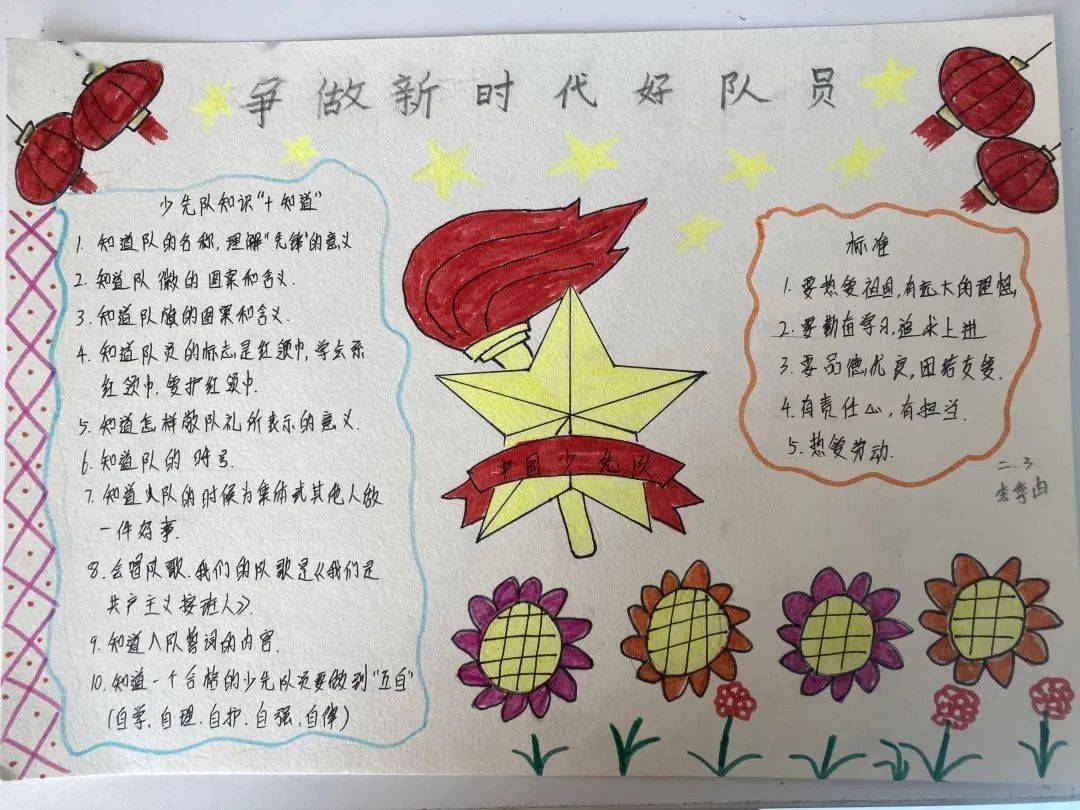 争做新时代好队员
少先队知识"十知道"
1. 知道队的名称,理解"先锋"的意义
2. 知道队徽的图案和含义.
3. 知道队旗的图案和含义.
4. 知道队员的标志是红领巾,学会系
红领巾,爱护红领巾.
5. 知道怎样敬队礼所表示的意义.
6. 知道队的呼号.
7. 知道入队的时候为集体或其他人做
一件好事.
8. 会唱队歌.我们的队歌是《我们是
共产主义接班人》.
9. 知道入队誓词的内容.
10. 知道一个合格的少先队员要做到"五自"
(自学、自理、自护、自强、自律)
中国少先队
标准
1. 要热爱祖国,有远大的理想,
2. 要勤奋学习,追求上进
3. 要品德优良,团结友爱.
4. 有责任心,有担当.
5. 热爱劳动.
二.3